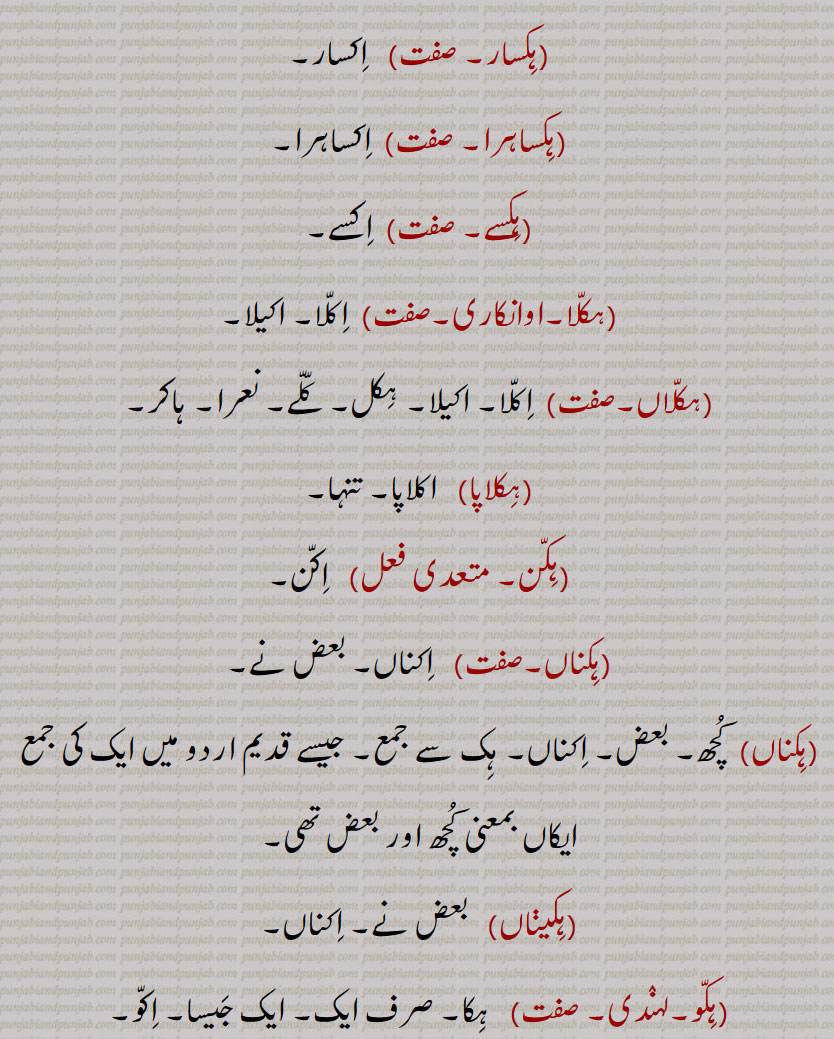 (ہِکسار۔ صفت) اِکسار۔
(ہِکساہرا۔ صفت) اِکساہرا۔
(ہِکسے۔ صفت) اِکسے۔
(ہکلّا۔اوانکاری۔صفت) اِکلّا۔ اکیلا۔
(ہکلّاں۔صفت) اِکلّا۔ اکیلا۔ ہِکل۔ کلّے۔ نعرا۔ ہاکر۔
(ہِکلاپا) اکلاپا۔ تنہا۔
(ہِکّن۔ متعدی فعل) اِکّن۔
(ہِکناں۔صفت) اِکناں۔ بعض نے۔
(ہِکناں) کُچھ۔ بعض۔ اِکناں۔ ہِک سے جمع۔ جیسے قدیم اردو میں ایک کی جمع
ایکاں بمعنی کُچھ اور بعض تھی۔
(ہِکیناں) بعض نے۔ اِکناں۔
(ہِکّو۔لہندی۔ صفت) ہِکا۔ صرف ایک۔ ایک جَیسا۔ اِکوّ۔